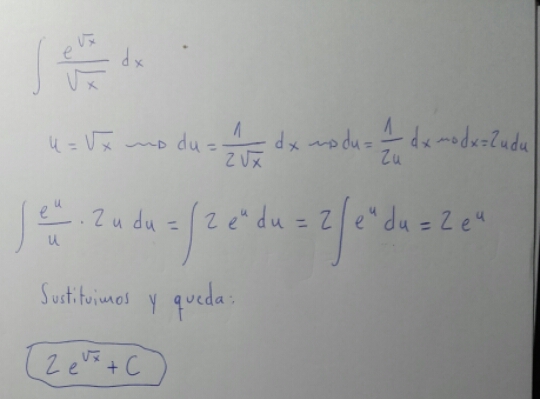 ∫ e^√x / √x dx
u = √x ⇝ du = 1/(2√x) dx ⇝ du = 1/(2u) dx ⇝ dx = 2u du
∫ e^u / u · 2u du = ∫ 2e^u du = 2∫ e^u du = 2e^u
Sustituimos y queda:
2e^√x + C